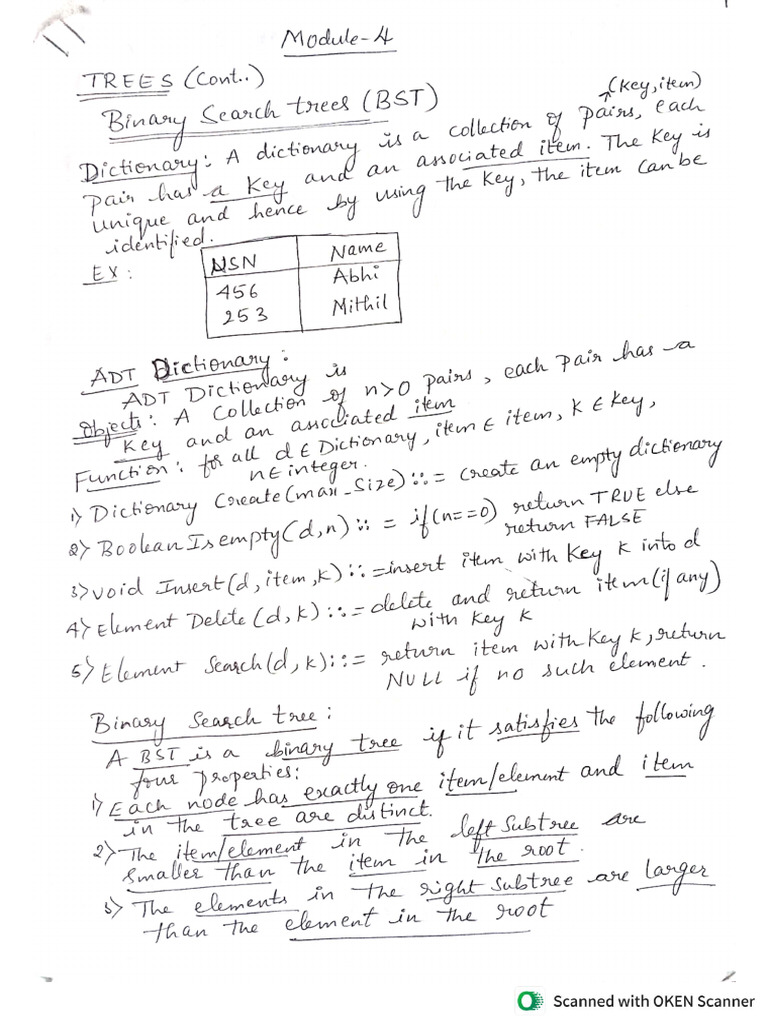 Module-4
TREES (Cont..)
Binary Search trees (BST)
(Key, item)
Dictionary: A dictionary is a collection of pairs, each
pair has a key and an associated item. The Key is
unique and hence by using the Key, the item can be
identified.
EX:
NSN Name
456 Abhi
253 Mithil
ADT Dictionary:
ADT Dictionary is
Objects: A Collection of n>0 pairs, each pair has a
Key and an associated item
Function: for all d ∈ Dictionary, item ∈ item, k ∈ Key,
n ∈ integer.
1) Dictionary Create(max_Size) ::= create an empty dictionary
2) Boolean Isempty(d,n) :: = if(n==0) return TRUE else
return FALSE
3) void Insert(d, item, k) ::= insert item with Key k into d
4) Element Delete (d, k) ::= delete and return item (if any)
with Key k
5) Element Search(d, k) ::= return item with Key k, return
NULL if no such element.
Binary Search tree:
A BST is a binary tree if it satisfies the following
four properties:
1) Each node has exactly one item/element and item
in the tree are distinct.
2) The item/element in the left Subtree are
Smaller than the item in the root.
3) The elements in the right subtree are larger
than the element in the root
Scanned with OKEN Scanner